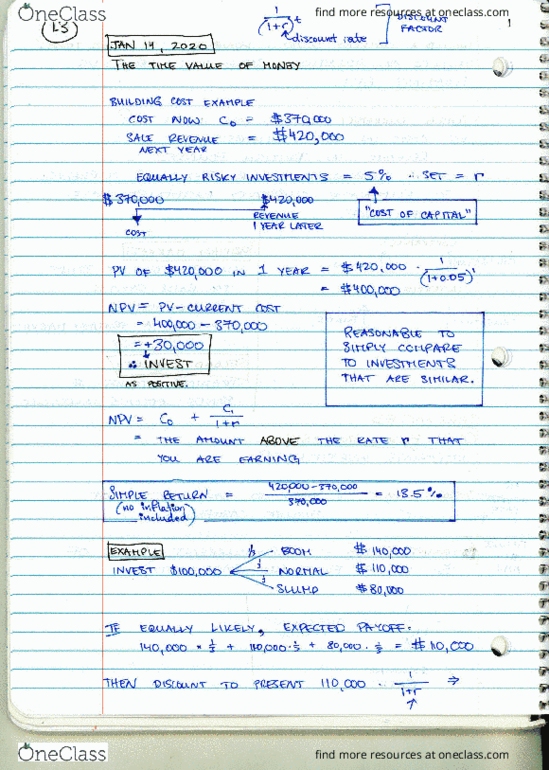 OneClass
find more resources at oneclass.com
1
L3
1
(1+r)^t
discount rate
DISCOUNT FACTOR
JAN 14, 2020
THE TIME VALUE OF MONEY
BUILDING COST EXAMPLE
COST NOW C₀ = $370,000
SALE REVENUE = $420,000
NEXT YEAR
EQUALLY RISKY INVESTMENTS = 5% ∴ SET = r
$370,000 $420,000
COST
REVENUE
1 YEAR LATER
"COST OF CAPITAL"
PV OF $420,000 IN 1 YEAR = $420,000 · 1/(1+0.05)^1
= $400,000
NPV = PV - CURRENT COST
= 400,000 - 370,000
= +30,000
∴ INVEST
AS POSITIVE.
REASONABLE TO
SIMPLY COMPARE
TO INVESTMENTS
THAT ARE SIMILAR.
NPV = C₀ + C₁/(1+r)
= THE AMOUNT ABOVE THE RATE r THAT
YOU ARE EARNING
SIMPLE RETURN = (420,000 - 370,000)/370,000 = 13.5%
(no inflation
included)
EXAMPLE
INVEST $100,000
1/3 BOOM $140,000
1/3 NORMAL $110,000
1/3 SLUMP $80,000
IF EQUALLY LIKELY, EXPECTED PAYOFF:
140,000 × 1/3 + 110,000 · 1/3 + 80,000 · 1/3 = $110,000
THEN DISCOUNT TO PRESENT 110,000 · 1/(1+r) ⇒
OneClass
find more resources at oneclass.com